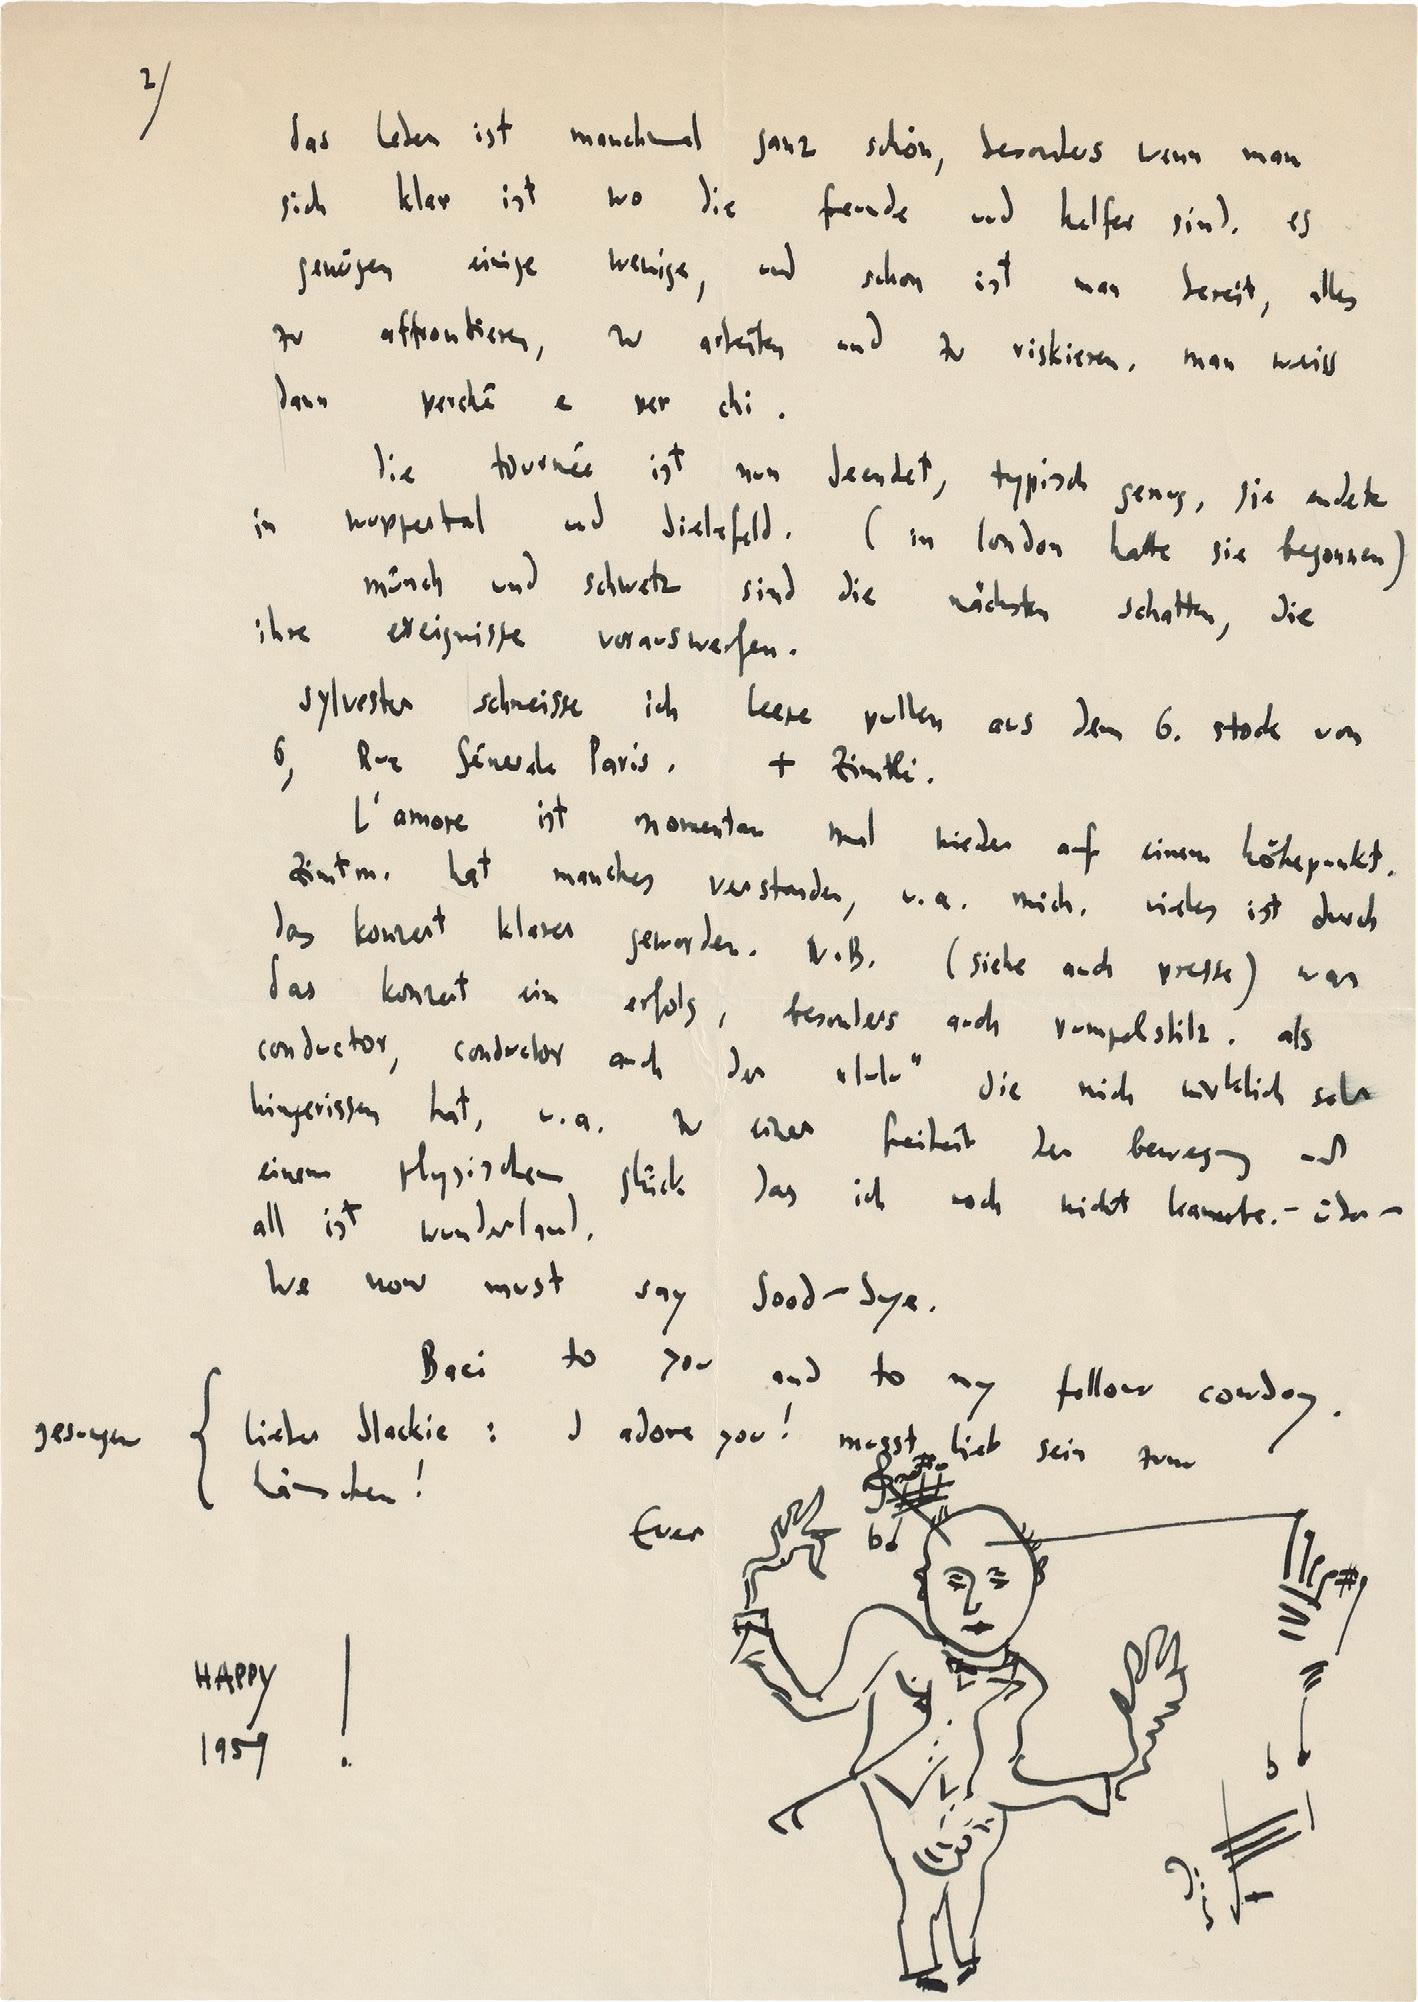 2/
das leben ist manchmal ganz schön, besonders wenn man
sich klar ist wo die freunde und helfer sind. es
genügen einige wenige, und schon ist man bereit, alles
zu affrontieren, zu arbeiten und zu riskieren. man weiss
dann perchè e per chi.
die tournée ist nun beendet, typisch genug, sie endete
in wuppertal und bielefeld. (in london hatte sie begonnen)
münch und schwetz sind die nächsten schatten, die
ihre ereignisse vorauswerfen.
sylvester schmeisse ich leere pullen aus dem 6. stock von
6, Rue Paris. +
L'amore ist momentan mal wieder auf einem höhepunkt.
hat manches verstanden, u.a. mich. vieles ist durch
das konzert klarer geworden. N.B. (siehe auch presse) war
das konzert ein erfolg, besonders auch rumpelstilz. als
conductor, conductor auch der "lulu" die mich wirklich sehr
hingerissen hat, u.a. zu einer freiheit der bewegung und
einem physischen glück das ich noch nicht kannte.- über-
all ist wunderland.
We now must say Good-bye.
Baci to you and to my fellow cowboy.
gesungen { lieber blackie: I adore you! musst lieb sein zum
hänschen!
Ever
HAPPY
1959 !